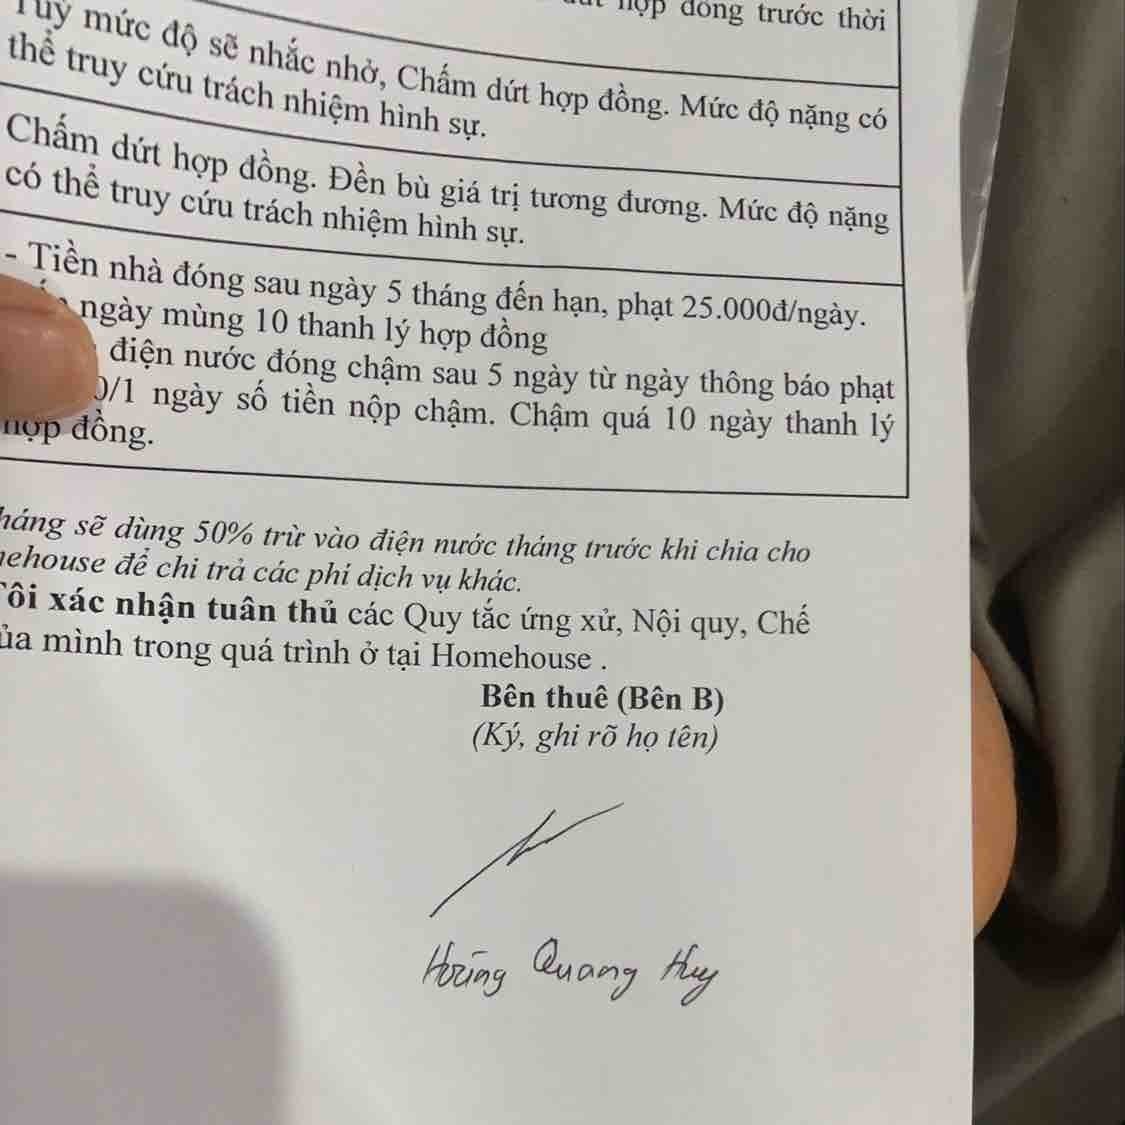 hợp đồng trước thời
Tùy mức độ sẽ nhắc nhở, Chấm dứt hợp đồng. Mức độ nặng có
thể truy cứu trách nhiệm hình sự.
Chấm dứt hợp đồng. Đền bù giá trị tương đương. Mức độ nặng
có thể truy cứu trách nhiệm hình sự.
- Tiền nhà đóng sau ngày 5 tháng đến hạn, phạt 25.000đ/ngày.
ngày mùng 10 thanh lý hợp đồng
điện nước đóng chậm sau 5 ngày từ ngày thông báo phạt
0/1 ngày số tiền nộp chậm. Chậm quá 10 ngày thanh lý
hợp đồng.
háng sẽ dùng 50% trừ vào điện nước tháng trước khi chia cho
mehouse để chi trả các phí dịch vụ khác.
Tôi xác nhận tuân thủ các Quy tắc ứng xử, Nội quy, Chế
ủa mình trong quá trình ở tại Homehouse .
Bên thuê (Bên B)
(Ký, ghi rõ họ tên)
Hoàng Quang Huy